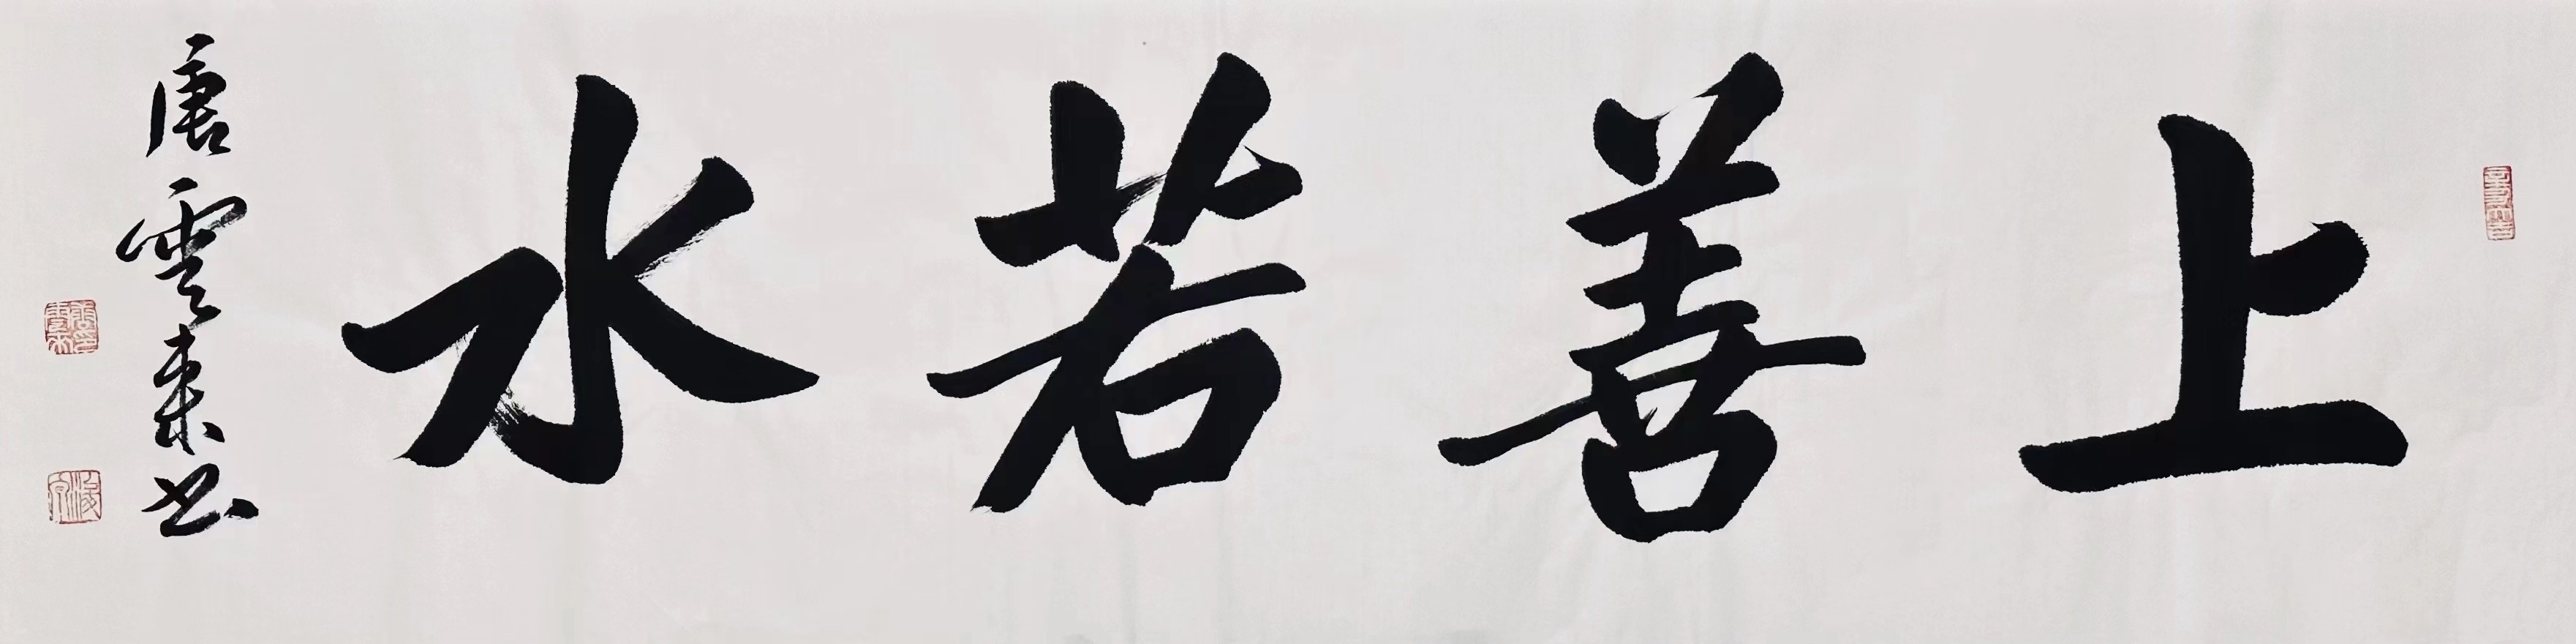 上善若水
唐雲來书